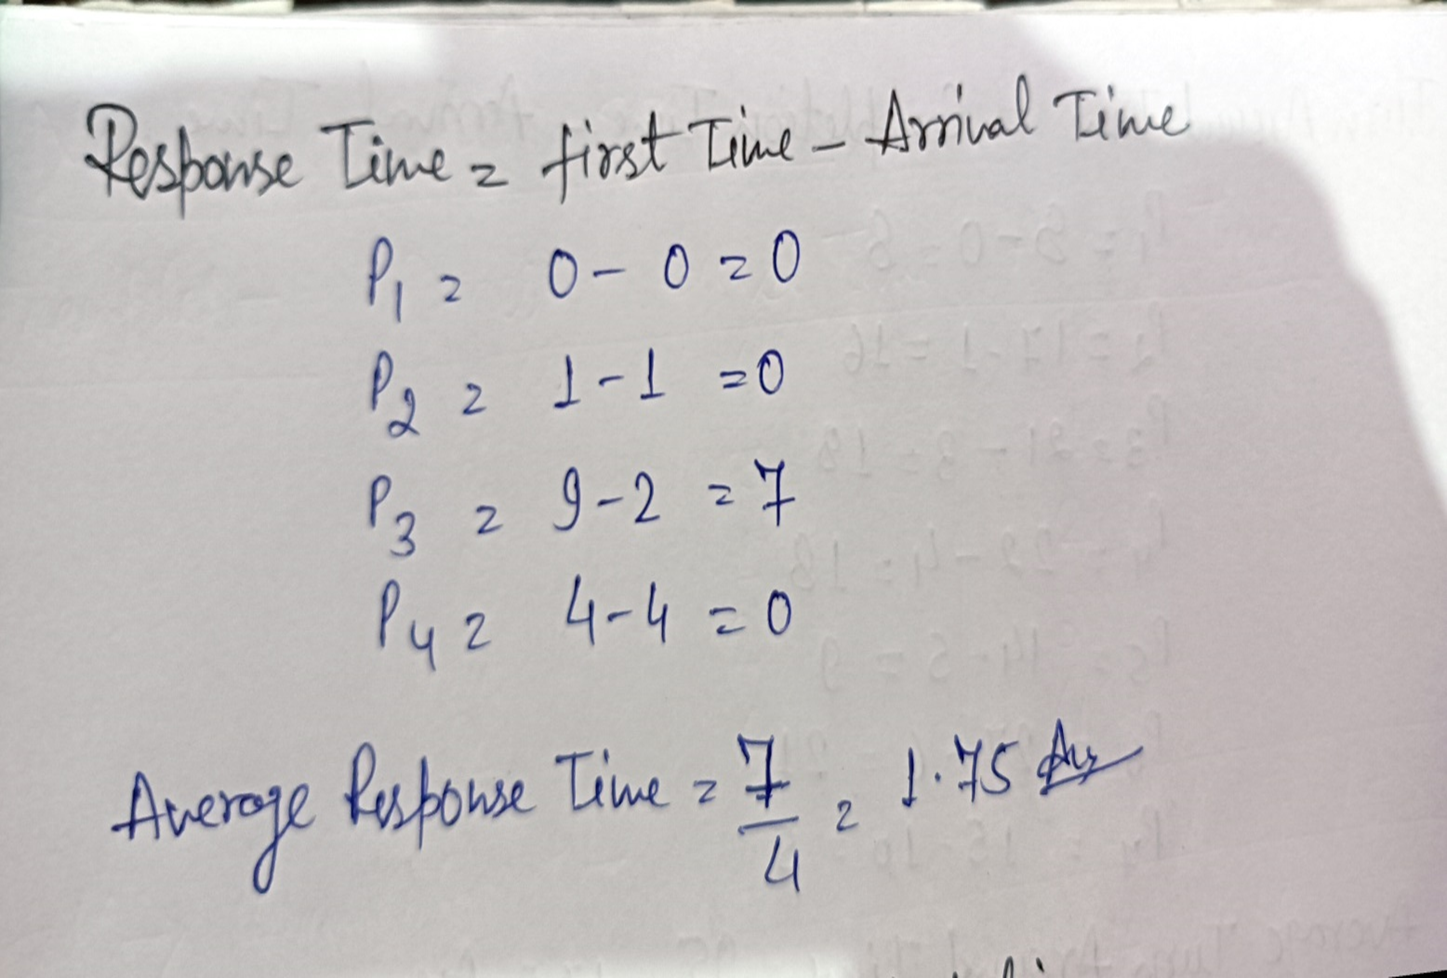 Response Time = first Time - Arrival Time
P1 = 0 - 0 = 0
P2 = 1 - 1 = 0
P3 = 9 - 2 = 7
P4 = 4 - 4 = 0
Average Response Time = 7/4 = 1.75 Ans